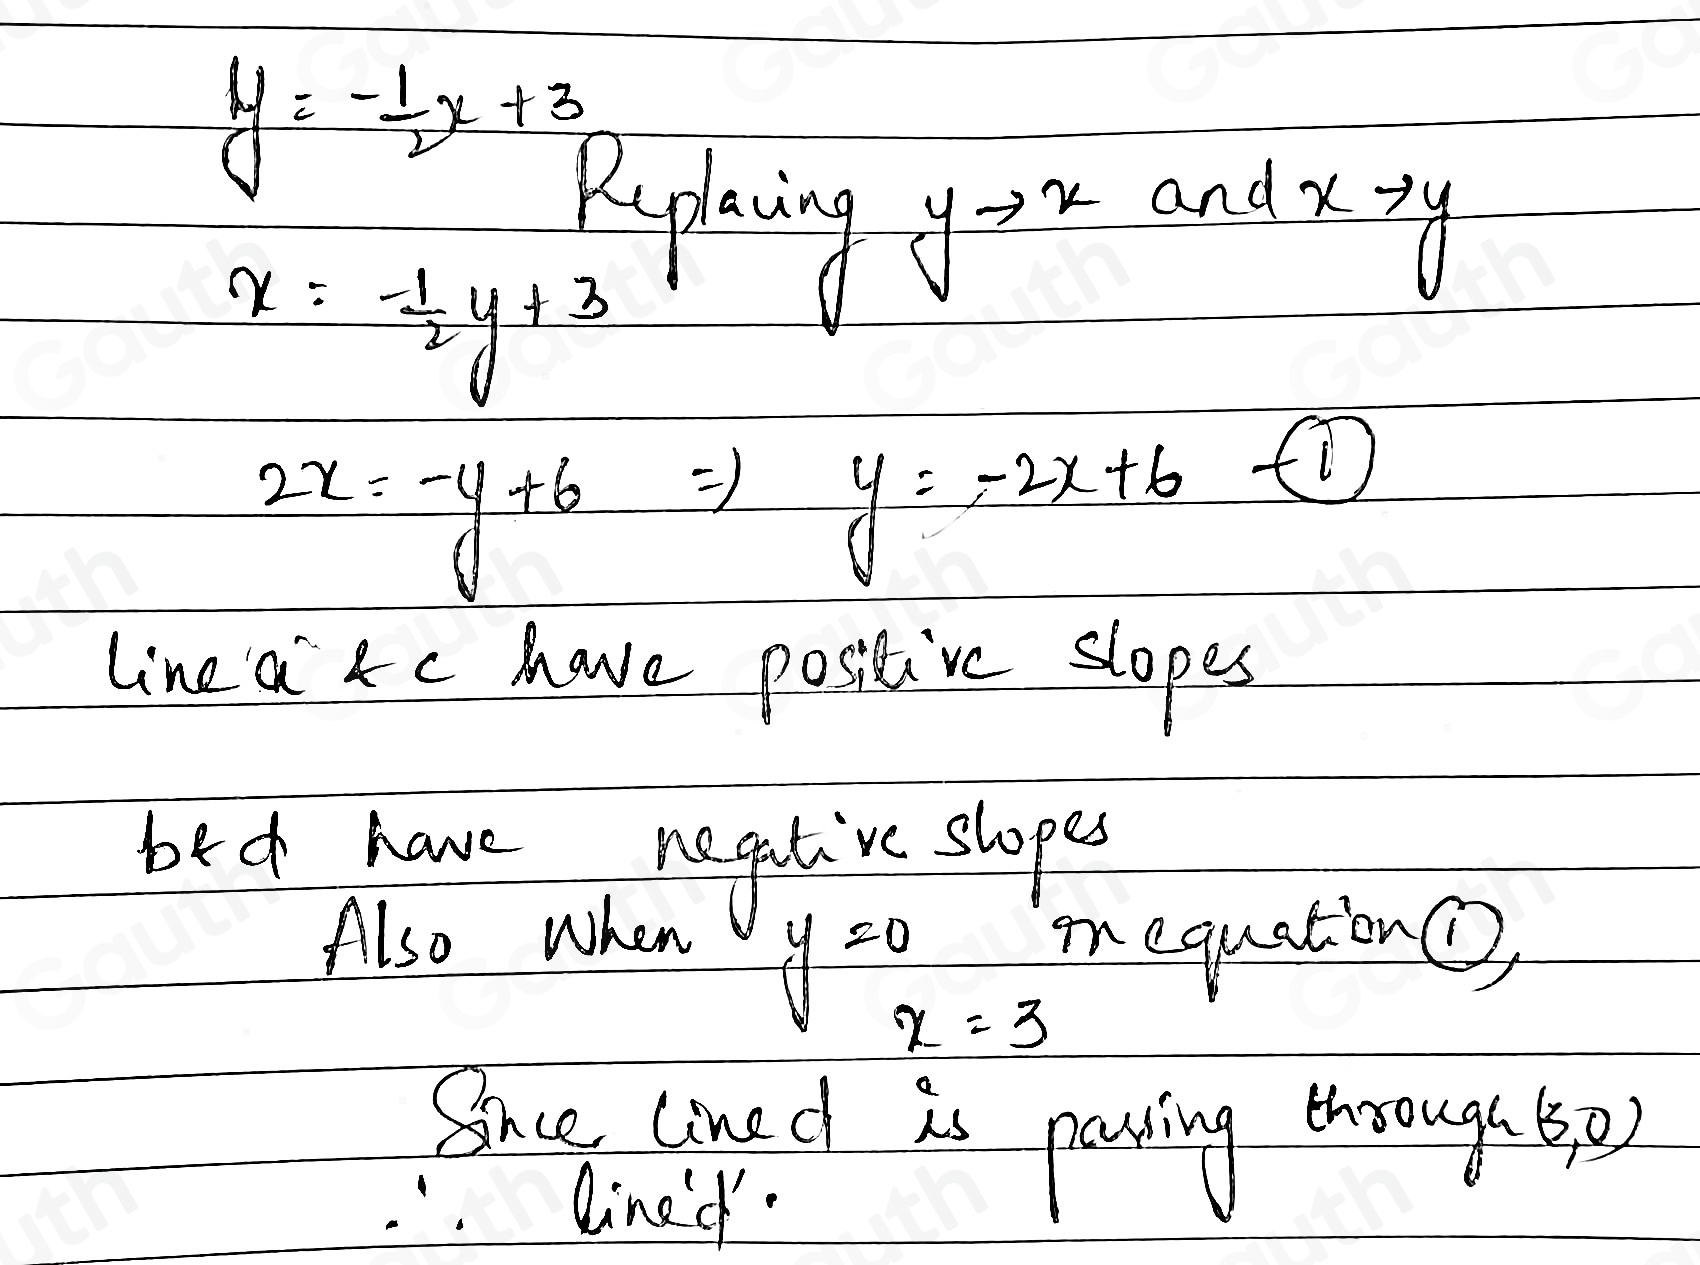 y = -1/2 x + 3
Replacing y → x and x → y
x = -1/2 y + 3
2x = -y + 6 ⇒ y = -2x + 6 - ①
line 'a' & c have positive slopes
b & d have negative slopes
Also when y = 0 in equation ①,
x = 3
Since line d is passing through (3,0)
∴ line 'd'.